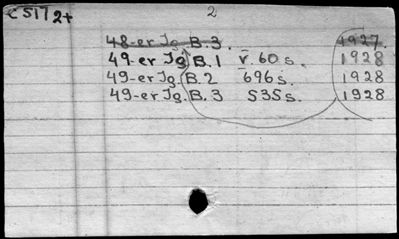 C 5172+ 2
48-er Jg. B. 3. 1927.
49-er Jg. B. 1 v. 60 s. 1928
49-er Jg. B. 2 696 s. 1928
49-er Jg. B. 3 535 s. 1928